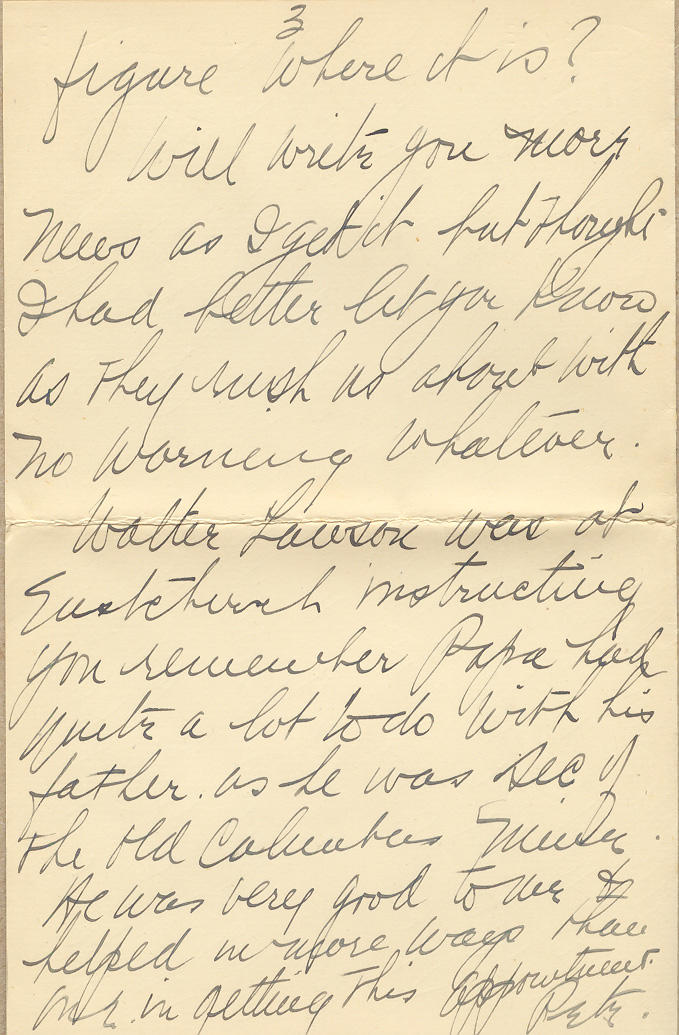 3
figure where it is?
Will write you more
news as I get it but thought
I had better let you know
as they rush us about with
no warning whatever.
Walter Lawson was at
Eastchurch instructing
you remember Papa had
quite a lot to do with his
father. as he was Sec of
the old Columbus
He was very good to me &
helped in more ways than
one in getting this appointment